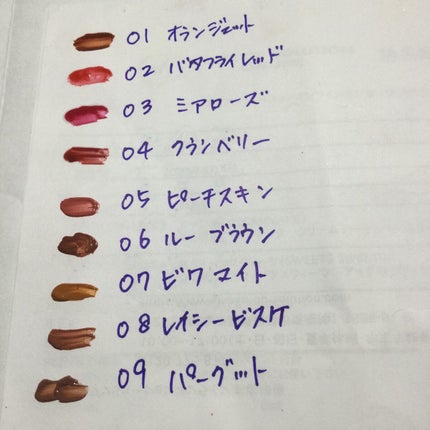 01 オランジェット
02 バタフライレッド
03 ミアローズ
04 クランベリー
05 ピーチスキン
06 ルーブラウン
07 ビワマイト
08 レイシービスケ
09 パーグット